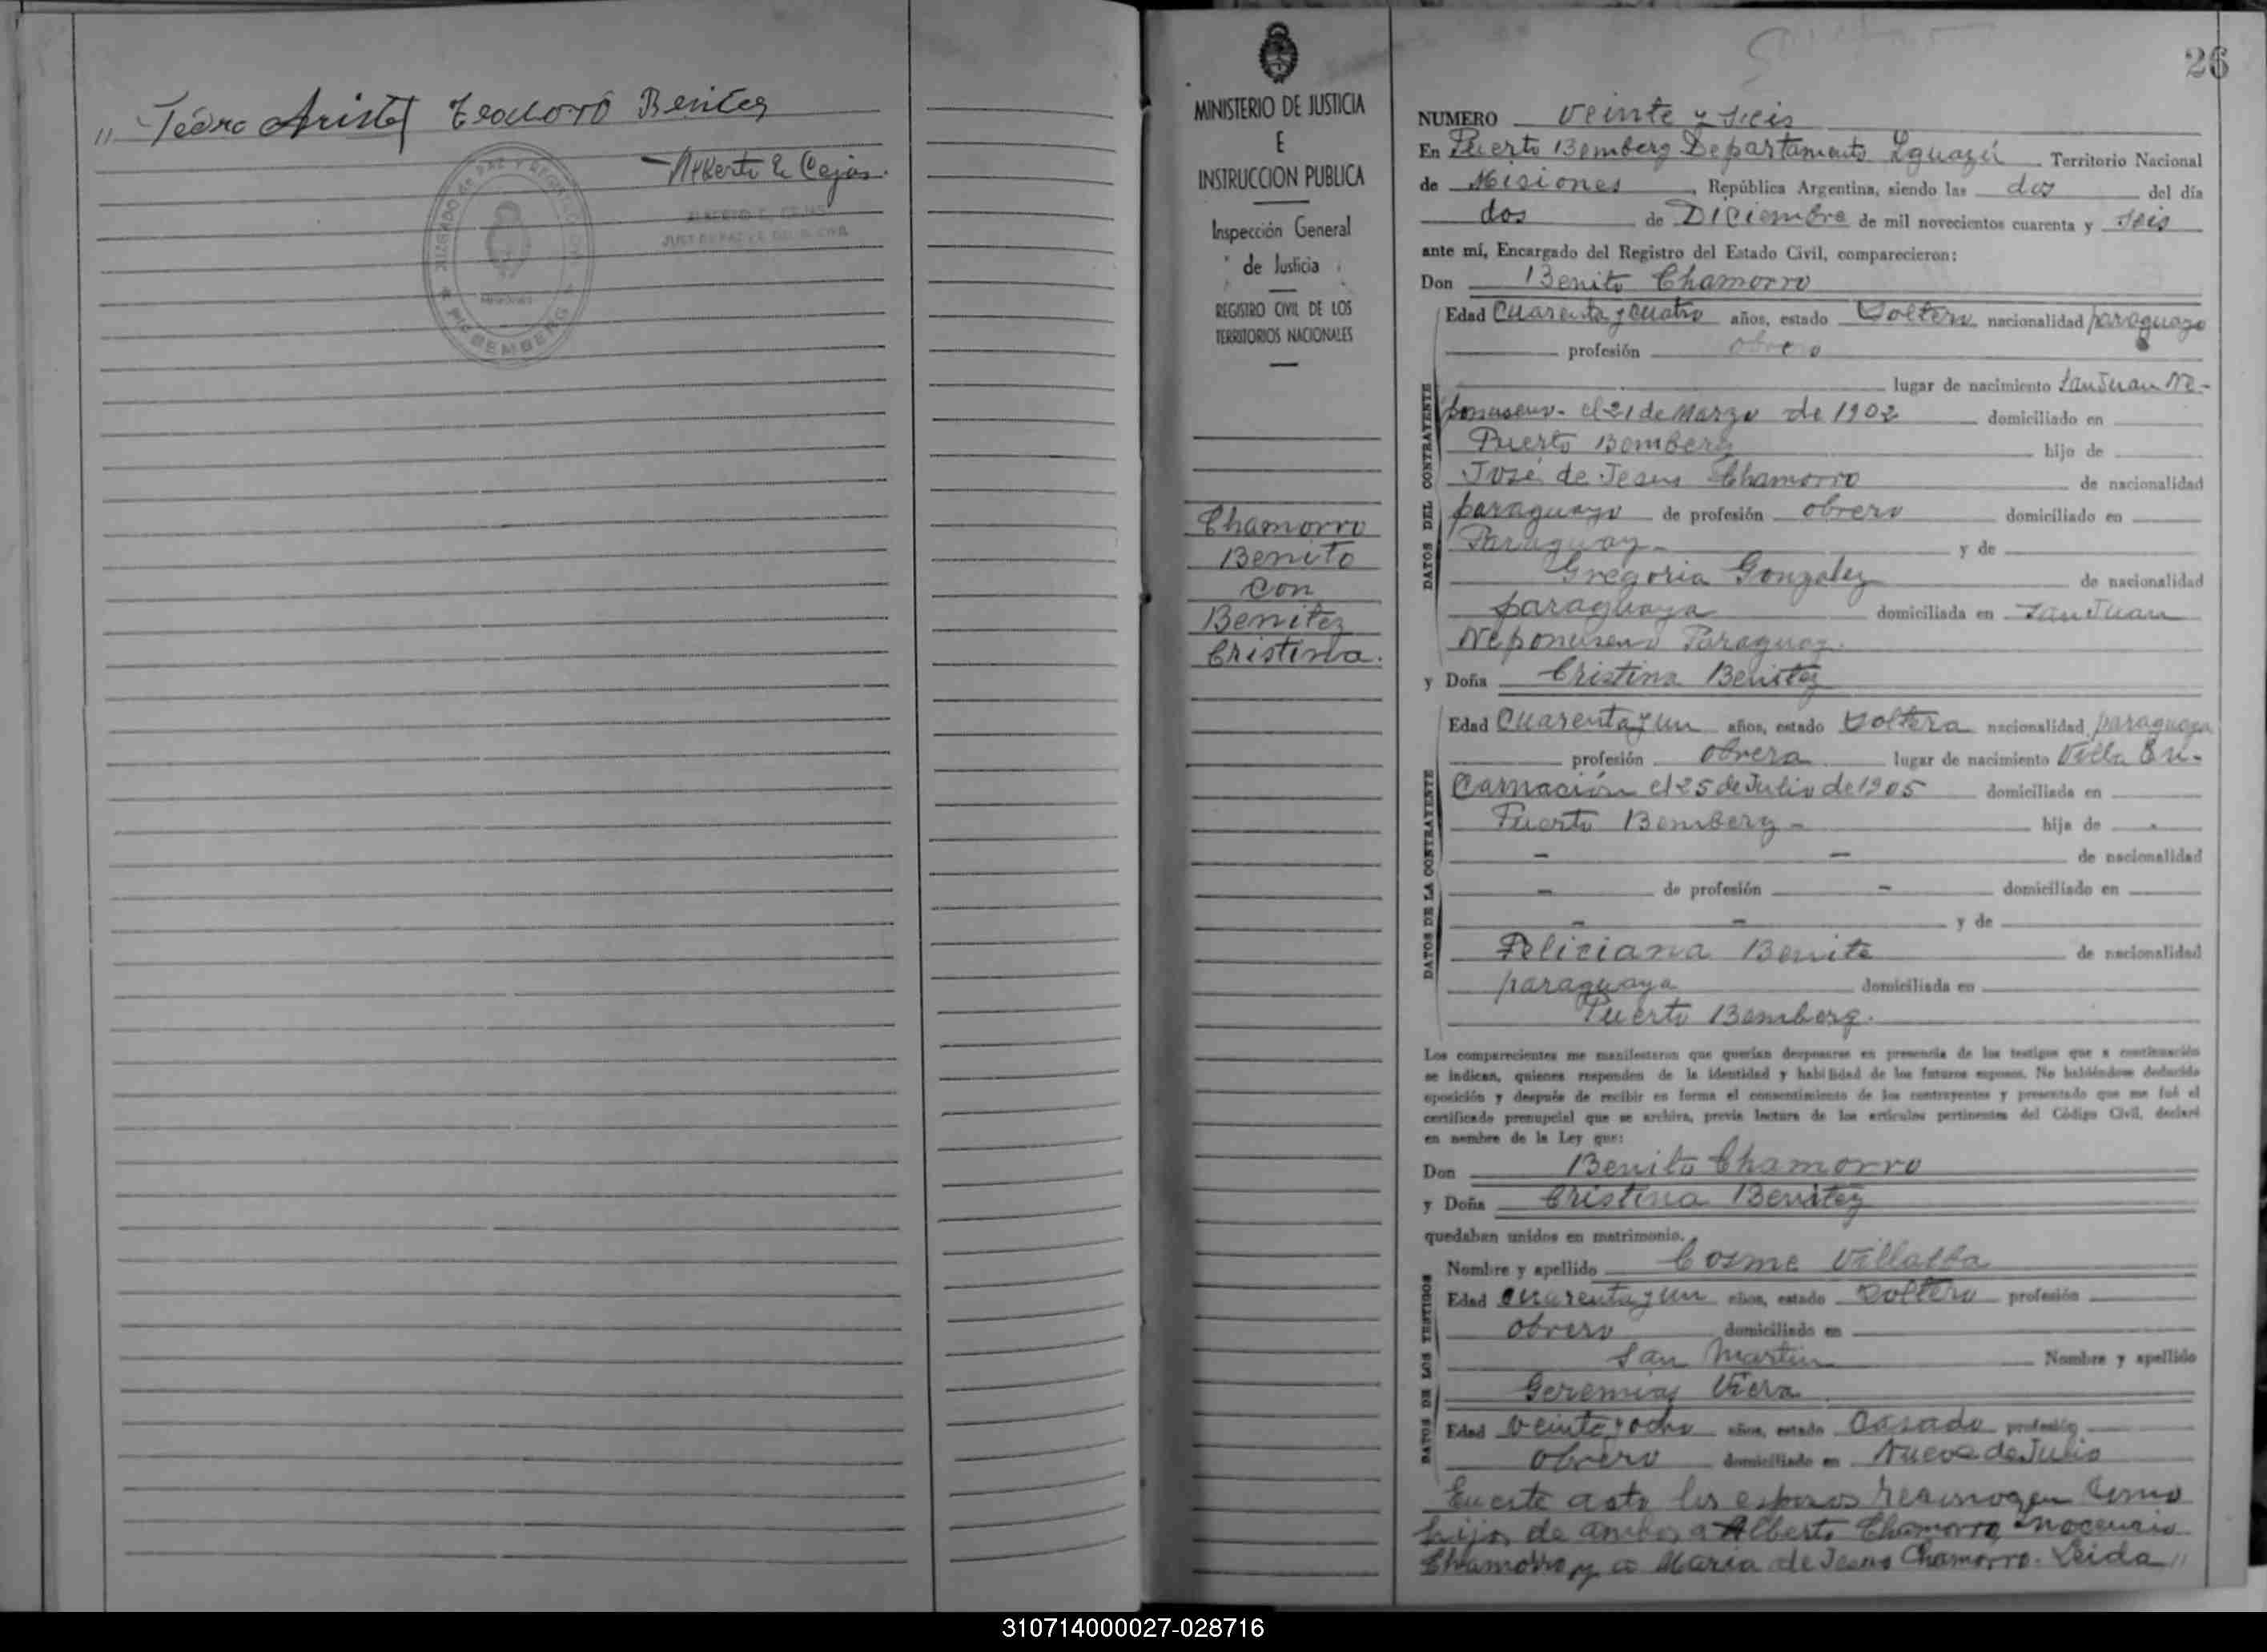 " Pedro Teodoro Benitez
Alberto E. Cejas
ALBERTO E. CEJAS
26
MINISTERIO DE JUSTICIA
E
INSTRUCCION PUBLICA
Inspección General
de Justicia
REGISTRO CIVIL DE LOS
TERRITORIOS NACIONALES
Chamorro
Benito
con
Benitez
Cristina.
NUMERO veinte y seis
En Puerto Bemberg Departamento Iguazú Territorio Nacional
de Misiones, República Argentina, siendo las dos del día
dos de Diciembre de mil novecientos cuarenta y seis
ante mí, Encargado del Registro del Estado Civil, comparecieron:
Don Benito Chamorro
DATOS DEL CONTRAYENTE
Edad cuarenta y cuatro años, estado soltero nacionalidad paraguayo
profesión obrero
lugar de nacimiento San Juan Ne-
ponuseno - el 21 de Marzo de 1902 domiciliado en
Puerto Bemberg hijo de
José de Jesus Chamorro de nacionalidad
paraguayo de profesión obrero domiciliado en
Paraguay - y de
Gregoria Gonzalez de nacionalidad
paraguaya domiciliada en San Juan
Neponuseno Paraguay.
y Doña Cristina Benitez
DATOS DE LA CONTRAYENTE
Edad cuarenta y un años, estado soltera nacionalidad paraguaya
profesión obrera lugar de nacimiento Villa En-
carnación el 25 de Julio de 1905 domiciliada en
Puerto Bemberg - hija de -
- - de nacionalidad
- de profesión - domiciliado en
- - y de
Feliciana Benite de nacionalidad
paraguaya domiciliada en
Puerto Bemberg.
Los comparecientes me manifestaron que querían desposarse en presencia de los testigos que a continuación
se indican, quienes responden de la identidad y habilidad de los futuros esposos. No habiéndose deducido
oposición y después de recibir en forma el consentimiento de los contrayentes y presentado que me fué el
certificado prenupcial que se archiva, previa lectura de los artículos pertinentes del Código Civil, declaré
en nombre de la Ley que:
Don Benito Chamorro
y Doña Cristina Benitez
quedaban unidos en matrimonio.
DATOS DE LOS TESTIGOS
Nombre y apellido Cosme Villalba
Edad cuarenta y un años, estado soltero profesión
obrero domiciliado en
San Martin Nombre y apellido
Geremias Viera
Edad veinte y ocho años, estado casado profesión
obrero domiciliado en Nueve de Julio
En este acto los esposos reconogen como
hijos de ambos a Alberto Chamorro Inocencio
Chamorro y a Maria de Jesus Chamorro. Leida "
310714000027-028716